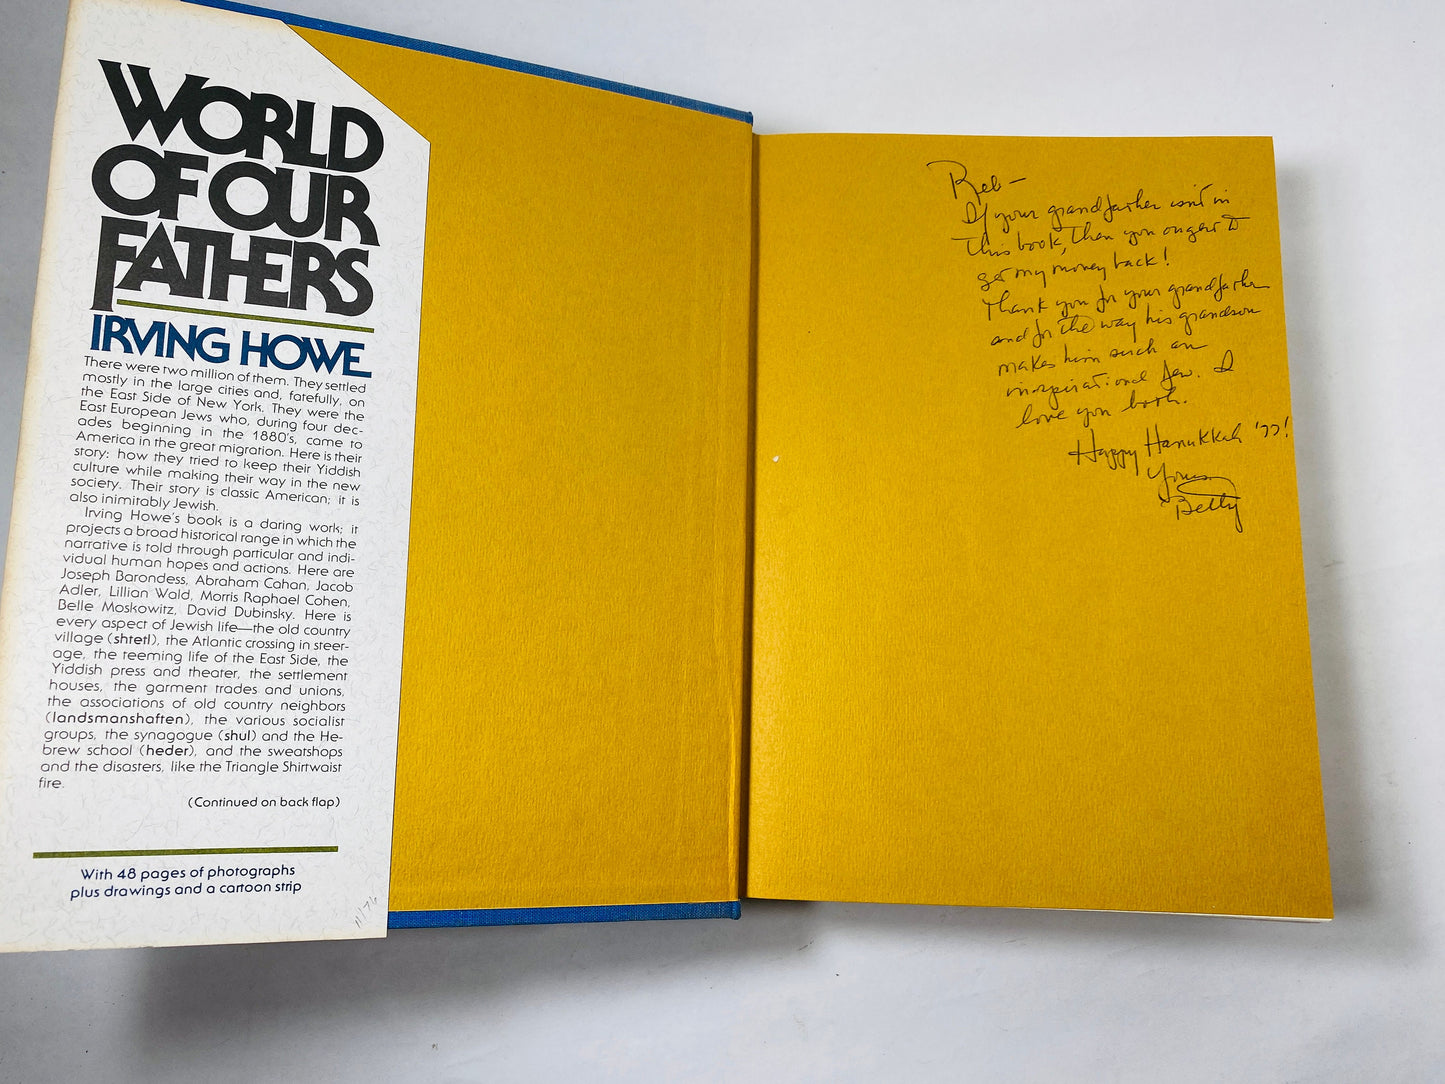 WORLD
OF OUR
FATHERS
IRVING HOWE
There were two million of them. They settled
mostly in the large cities and, fatefully, on
the East Side of New York. They were the
East European Jews who, during four dec-
ades beginning in the 1880's, came to
America in the great migration. Here is their
story: how they tried to keep their Yiddish
culture while making their way in the new
society. Their story is classic American; it is
also inimitably Jewish.
Irving Howe's book is a daring work; it
projects a broad historical range in which the
narrative is told through particular and indi-
vidual human hopes and actions. Here are
Joseph Barondess, Abraham Cahan, Jacob
Adler, Lillian Wald, Morris Raphael Cohen,
Belle Moskowitz, David Dubinsky. Here is
every aspect of Jewish life—the old country
village (shtetl), the Atlantic crossing in steer-
age, the teeming life of the East Side, the
Yiddish press and theater, the settlement
houses, the garment trades and unions,
the associations of old country neighbors
(landsmanshaften), the various socialist
groups, the synagogue (shul) and the He-
brew school (heder), and the sweatshops
and the disasters, like the Triangle Shirtwaist
fire.
(Continued on back flap)
With 48 pages of photographs
plus drawings and a cartoon strip
11/76
Reb—
If your grandfather isn't in
this book, then you ought to
get my money back!
Thank you for your grandfather
and for the way his grandson
makes him such an
inspirational Jew. I
love you both.
Happy Hanukkah '77!
Yours
Betty